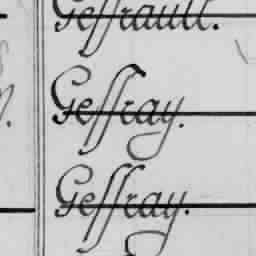 Geffrault.
Geffray.
Geffray.